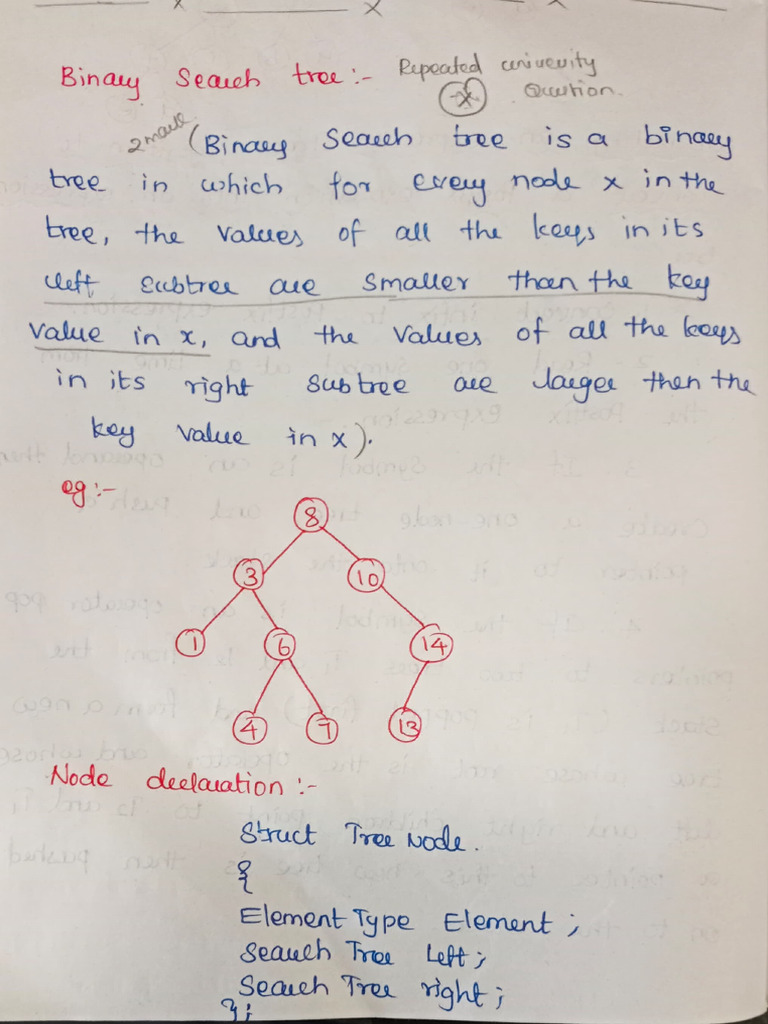 Binary Search tree:- Repeated university
Question.
2 mark (Binary Search tree is a binary
tree in which for every node x in the
tree, the values of all the keys in its
left subtree are smaller than the key
value in x, and the values of all the keys
in its right subtree are larger then the
key value in x).
eg:-
8
3 10
1 6 14
4 7 13
Node declaration:-
Struct Tree Node.
{
Element Type Element;
Search Tree Left;
Search Tree right;
};